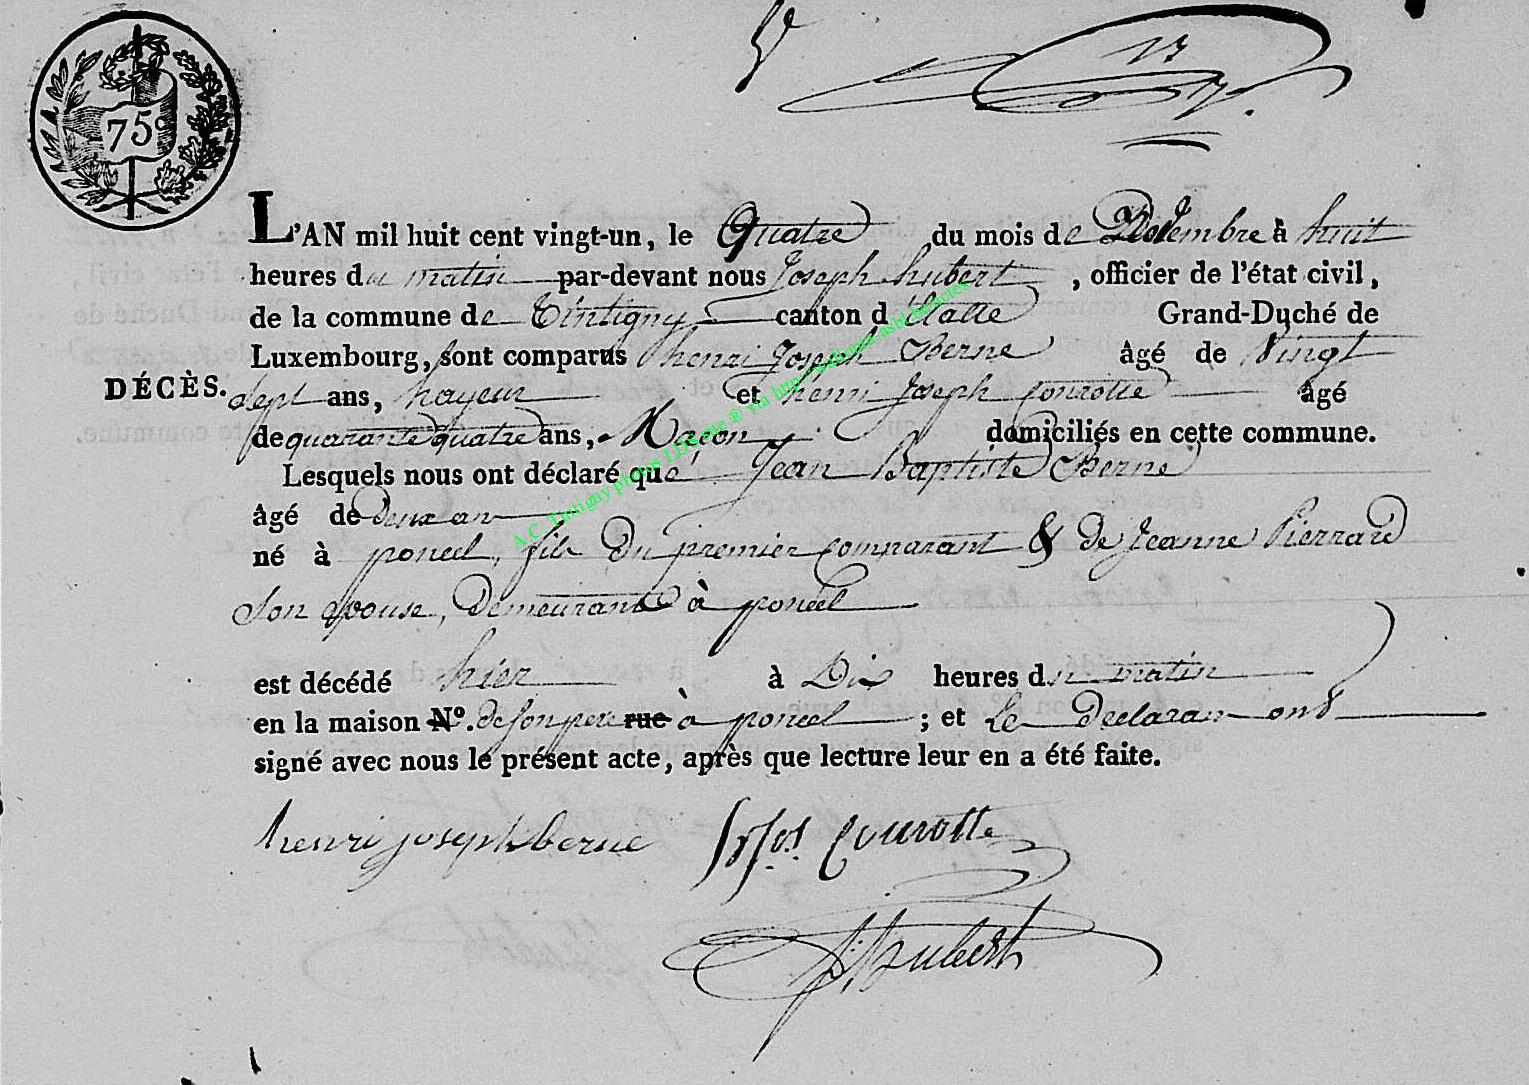 75c
L'AN mil huit cent vingt-un, le Quatre du mois de Décembre à huit
heures du matin par-devant nous Joseph hubert, officier de l'état civil,
de la commune de Tintigny canton d'Etalle Grand-Duché de
Luxembourg, sont comparus henri Joseph Berne âgé de Vingt
DÉCÈS.
sept ans, hayeur et henri Joseph Conrotte âgé
de quarante quatre ans, Maçon domiciliés en cette commune.
Lesquels nous ont déclaré que Jean Baptiste Berne
âgé de deux an
né à poncel, fils Du premier Comparant & de Jeanne Pierrard
Son epouse, Demeurant à poncel
est décédé hier à Dix heures du matin
en la maison N°. de son pere rue à poncel ; et Le Declaran ont
signé avec nous le présent acte, après que lecture leur en a été faite.
henri joseph berne Conrotte
J: hubert
A.C. Tintigny photos LDS site ® via